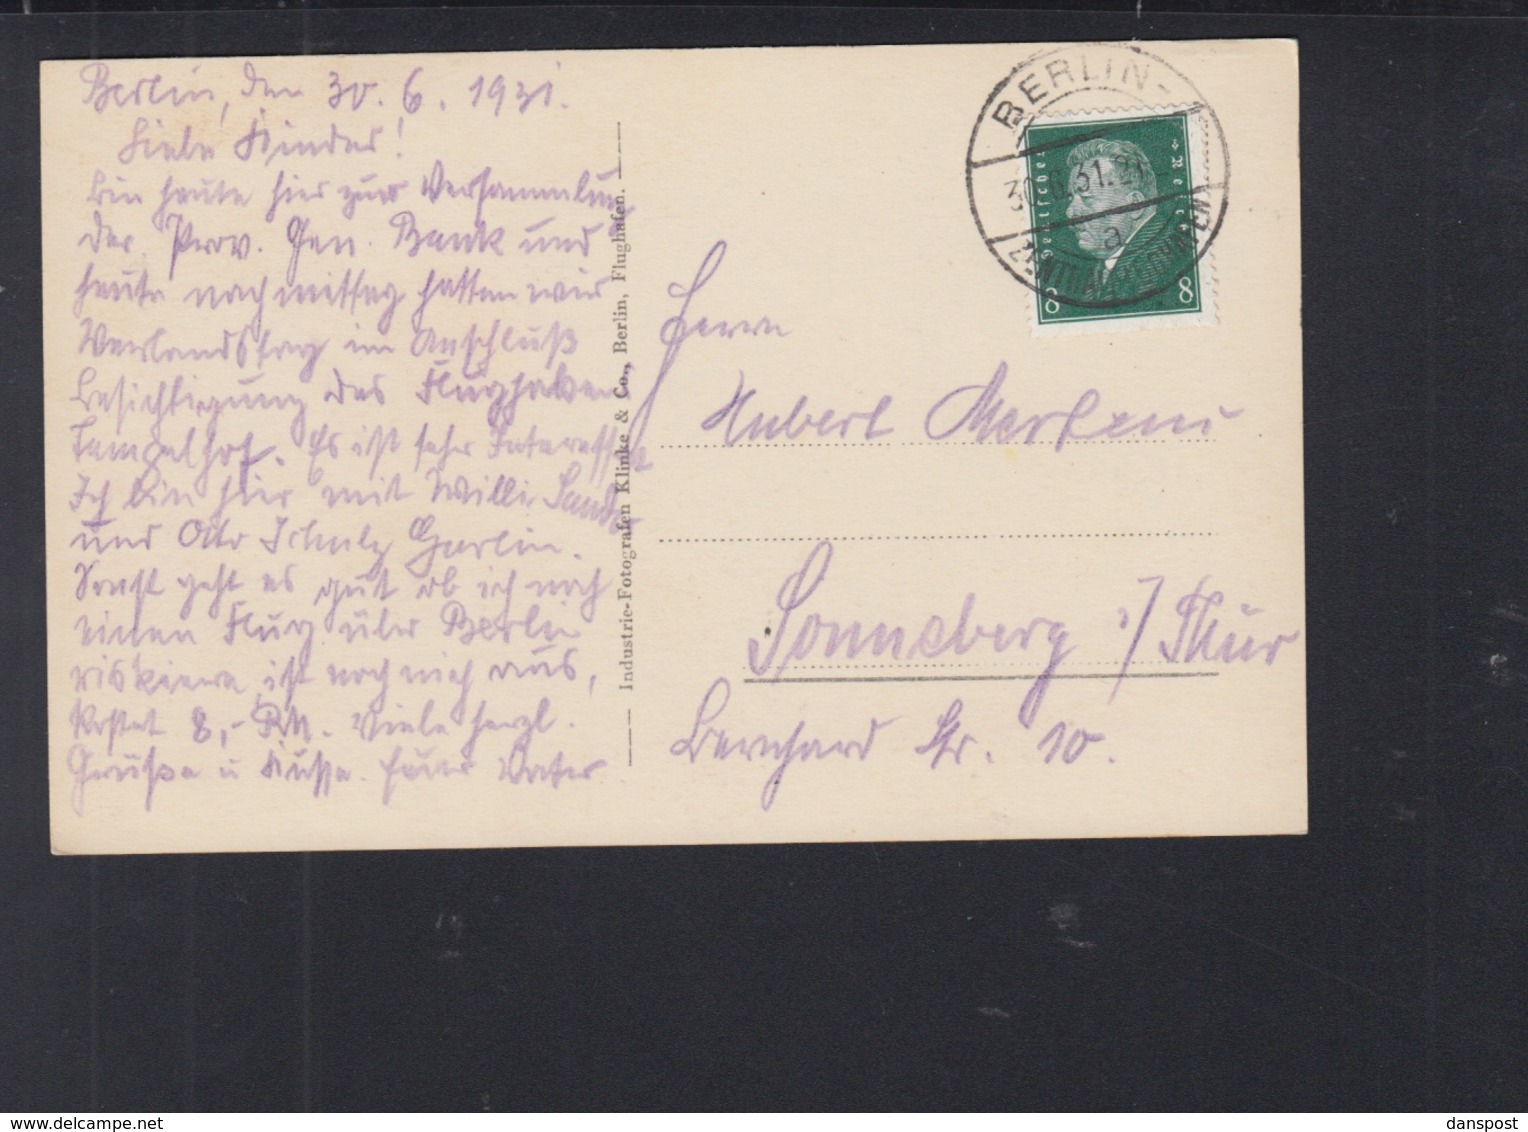 Berlin, den 30. 6. 1931.
Liebe Kinder!
Bin heute hier zur Versammlung
der Prov. Gen. Bank und
heute nachmittag hatten wir
Verbandstag im Anschluß
Besichtigung des Flughafen
Tempelhof. Es ist sehr Interessant
Ich bin hier mit Willi
und Otto Schulz
Sonst geht es gut ob ich noch
einen Flug über Berlin
riskiere ist noch nich aus,
kostet 8,- RM. Viele herzl.
Grüße u Küsse. Euer Vater
Industrie-Fotografen Klinke & Co., Berlin, Flughafen.
BERLIN-
30.6.31.21
a
ZENTRALFLUGHAFEN
Deutsches Reich
8 8
Herrn
Hubert Mertens
Sonneberg i/Thür
Bernhard Str. 10.
danspost